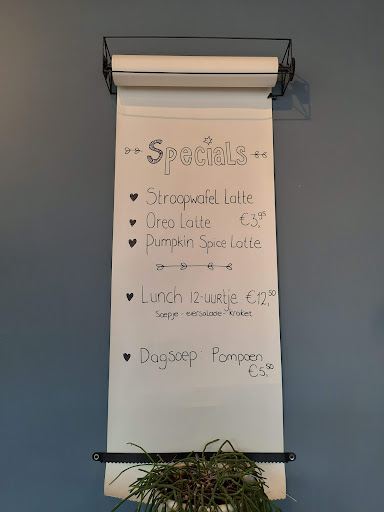 Specials
Stroopwafel Latte
Oreo Latte €3,95
Pumpkin Spice Latte
Lunch 12-uurtje €12,50
Soepje - eiersalade - kroket
Dagsoep: Pompoen
€5,50